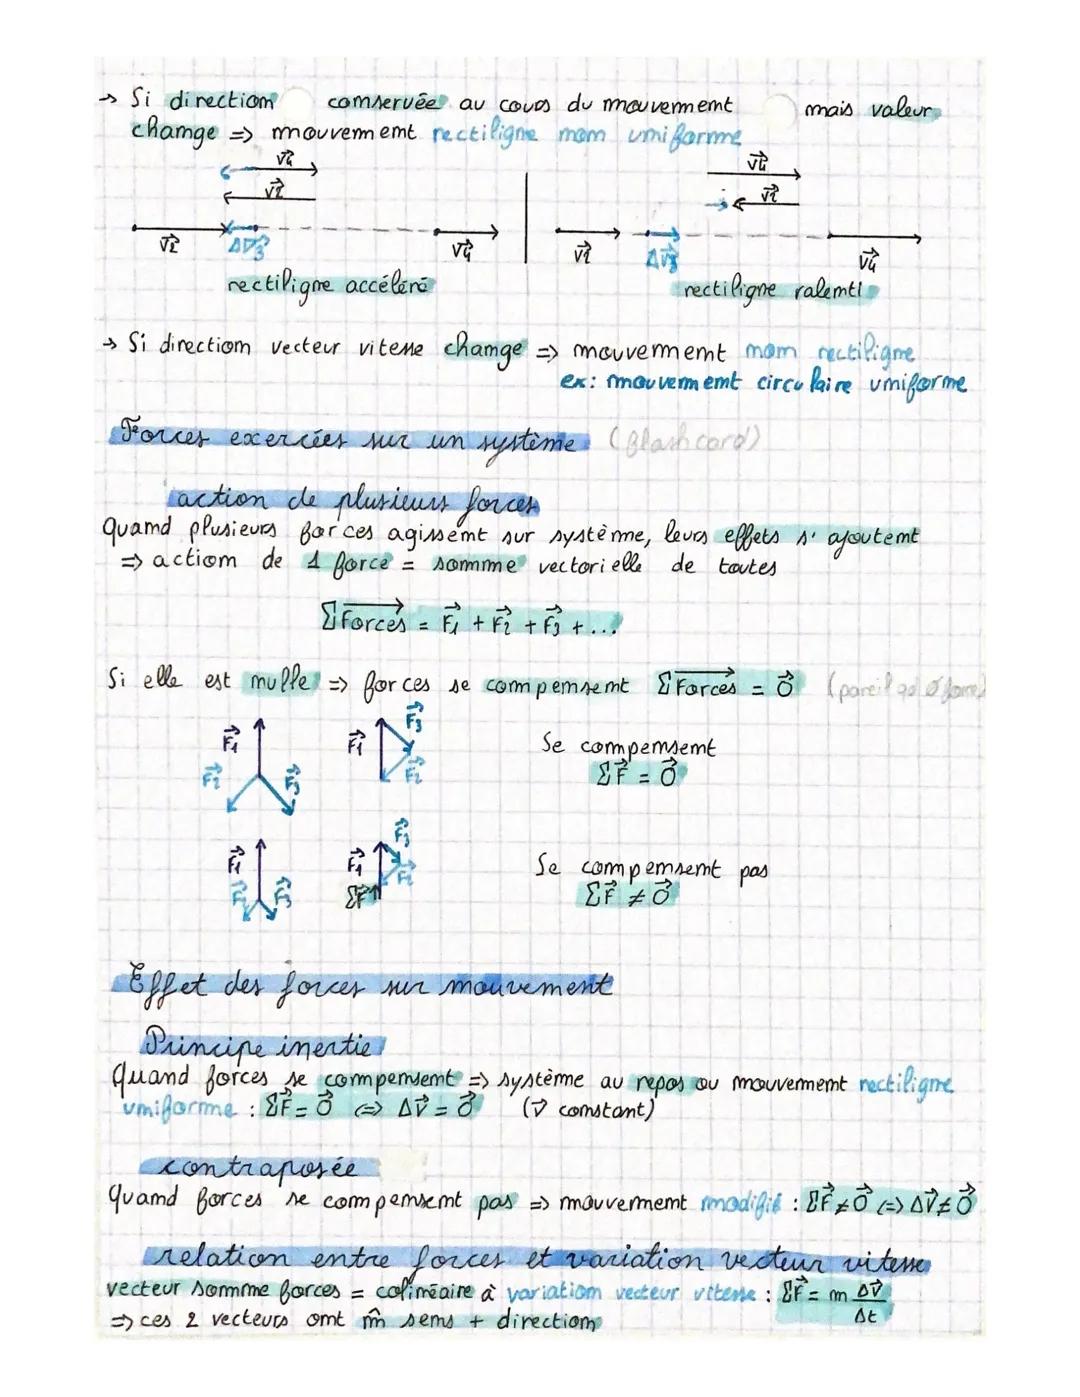 → Si direction conservée au cours du mouvement mais valeur
change => mouvement rectiligne non uniforme
v⃗4 v⃗4
v⃗2 v⃗2
v⃗2 Δv⃗3 v⃗4 v⃗2 Δv⃗3 v⃗4
rectiligne accéléré rectiligne ralenti
→ Si direction vecteur vitesse change => mouvement non rectiligne
ex: mouvement circulaire uniforme
Forces exercées sur un système (flashcard)
action de plusieurs forces
Quand plusieurs forces agissent sur système, leurs effets s'ajoutent
=> action de 1 force = somme vectorielle de toutes
ΣForces⃗ = F⃗1 + F⃗2 + F⃗3 + ...
Si elle est nulle => forces se compensent ΣForces⃗ = 0⃗ (pareil qd 0 force)
F⃗1 F⃗2 F⃗3 F⃗1 F⃗3 F⃗2 Se compensent
ΣF⃗ = 0⃗
F⃗1 F⃗2 F⃗3 F⃗1 F⃗3 F⃗2 ΣF⃗ Se compensent pas
ΣF⃗ ≠ 0⃗
Effet des forces sur mouvement
Principe inertie
Quand forces se compensent => système au repos ou mouvement rectiligne
uniforme : ΣF⃗ = 0⃗ <=> Δv⃗ = 0⃗ (v⃗ constant)
contraposée
Quand forces se compensent pas => mouvement modifié : ΣF⃗ ≠ 0⃗ <=> Δv⃗ ≠ 0⃗
relation entre forces et variation vecteur vitesse
vecteur somme forces = colinéaire à variation vecteur vitesse : ΣF⃗ = m Δv⃗/Δt
=> ces 2 vecteurs ont m̂ sens + direction